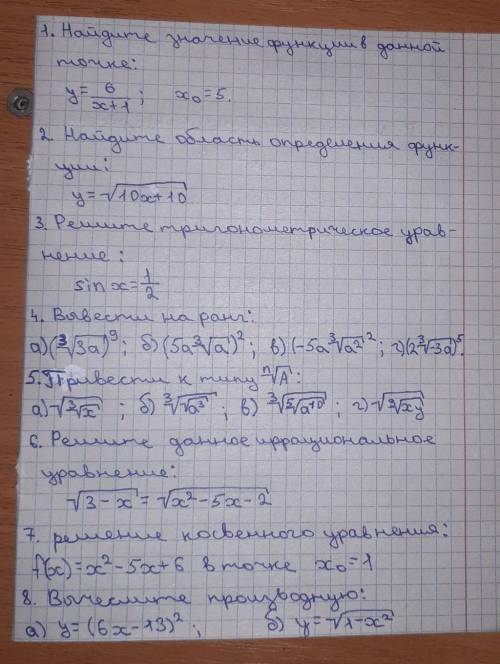 1. Найдите значение функции в данной
точке:
y = 6/(x+1); x₀ = 5.
2. Найдите область определения функ-
ции:
y = √(10x+10)
3. Решите тригонометрическое урав-
нение:
sin x = 1/2
4. Вывести на ранг:
а) (∛(3a))⁹; б) (5a∛a)²; в) (-5a∛(a²))²; г) (2∛(-3a))⁵.
5. Привести к типу ⁿ√A:
а) √(∛x); б) ∛(√(a³)); в)
г)
6. Решите данное иррациональное
уравнение:
√(3-x) = √(x²-5x-2)
7. решение косвенного уравнения:
f(x) = x²-5x+6 в точке x₀ = 1
8. Вычеслите производную:
а) y = (6x-13)²; б) y = √(1-x²)